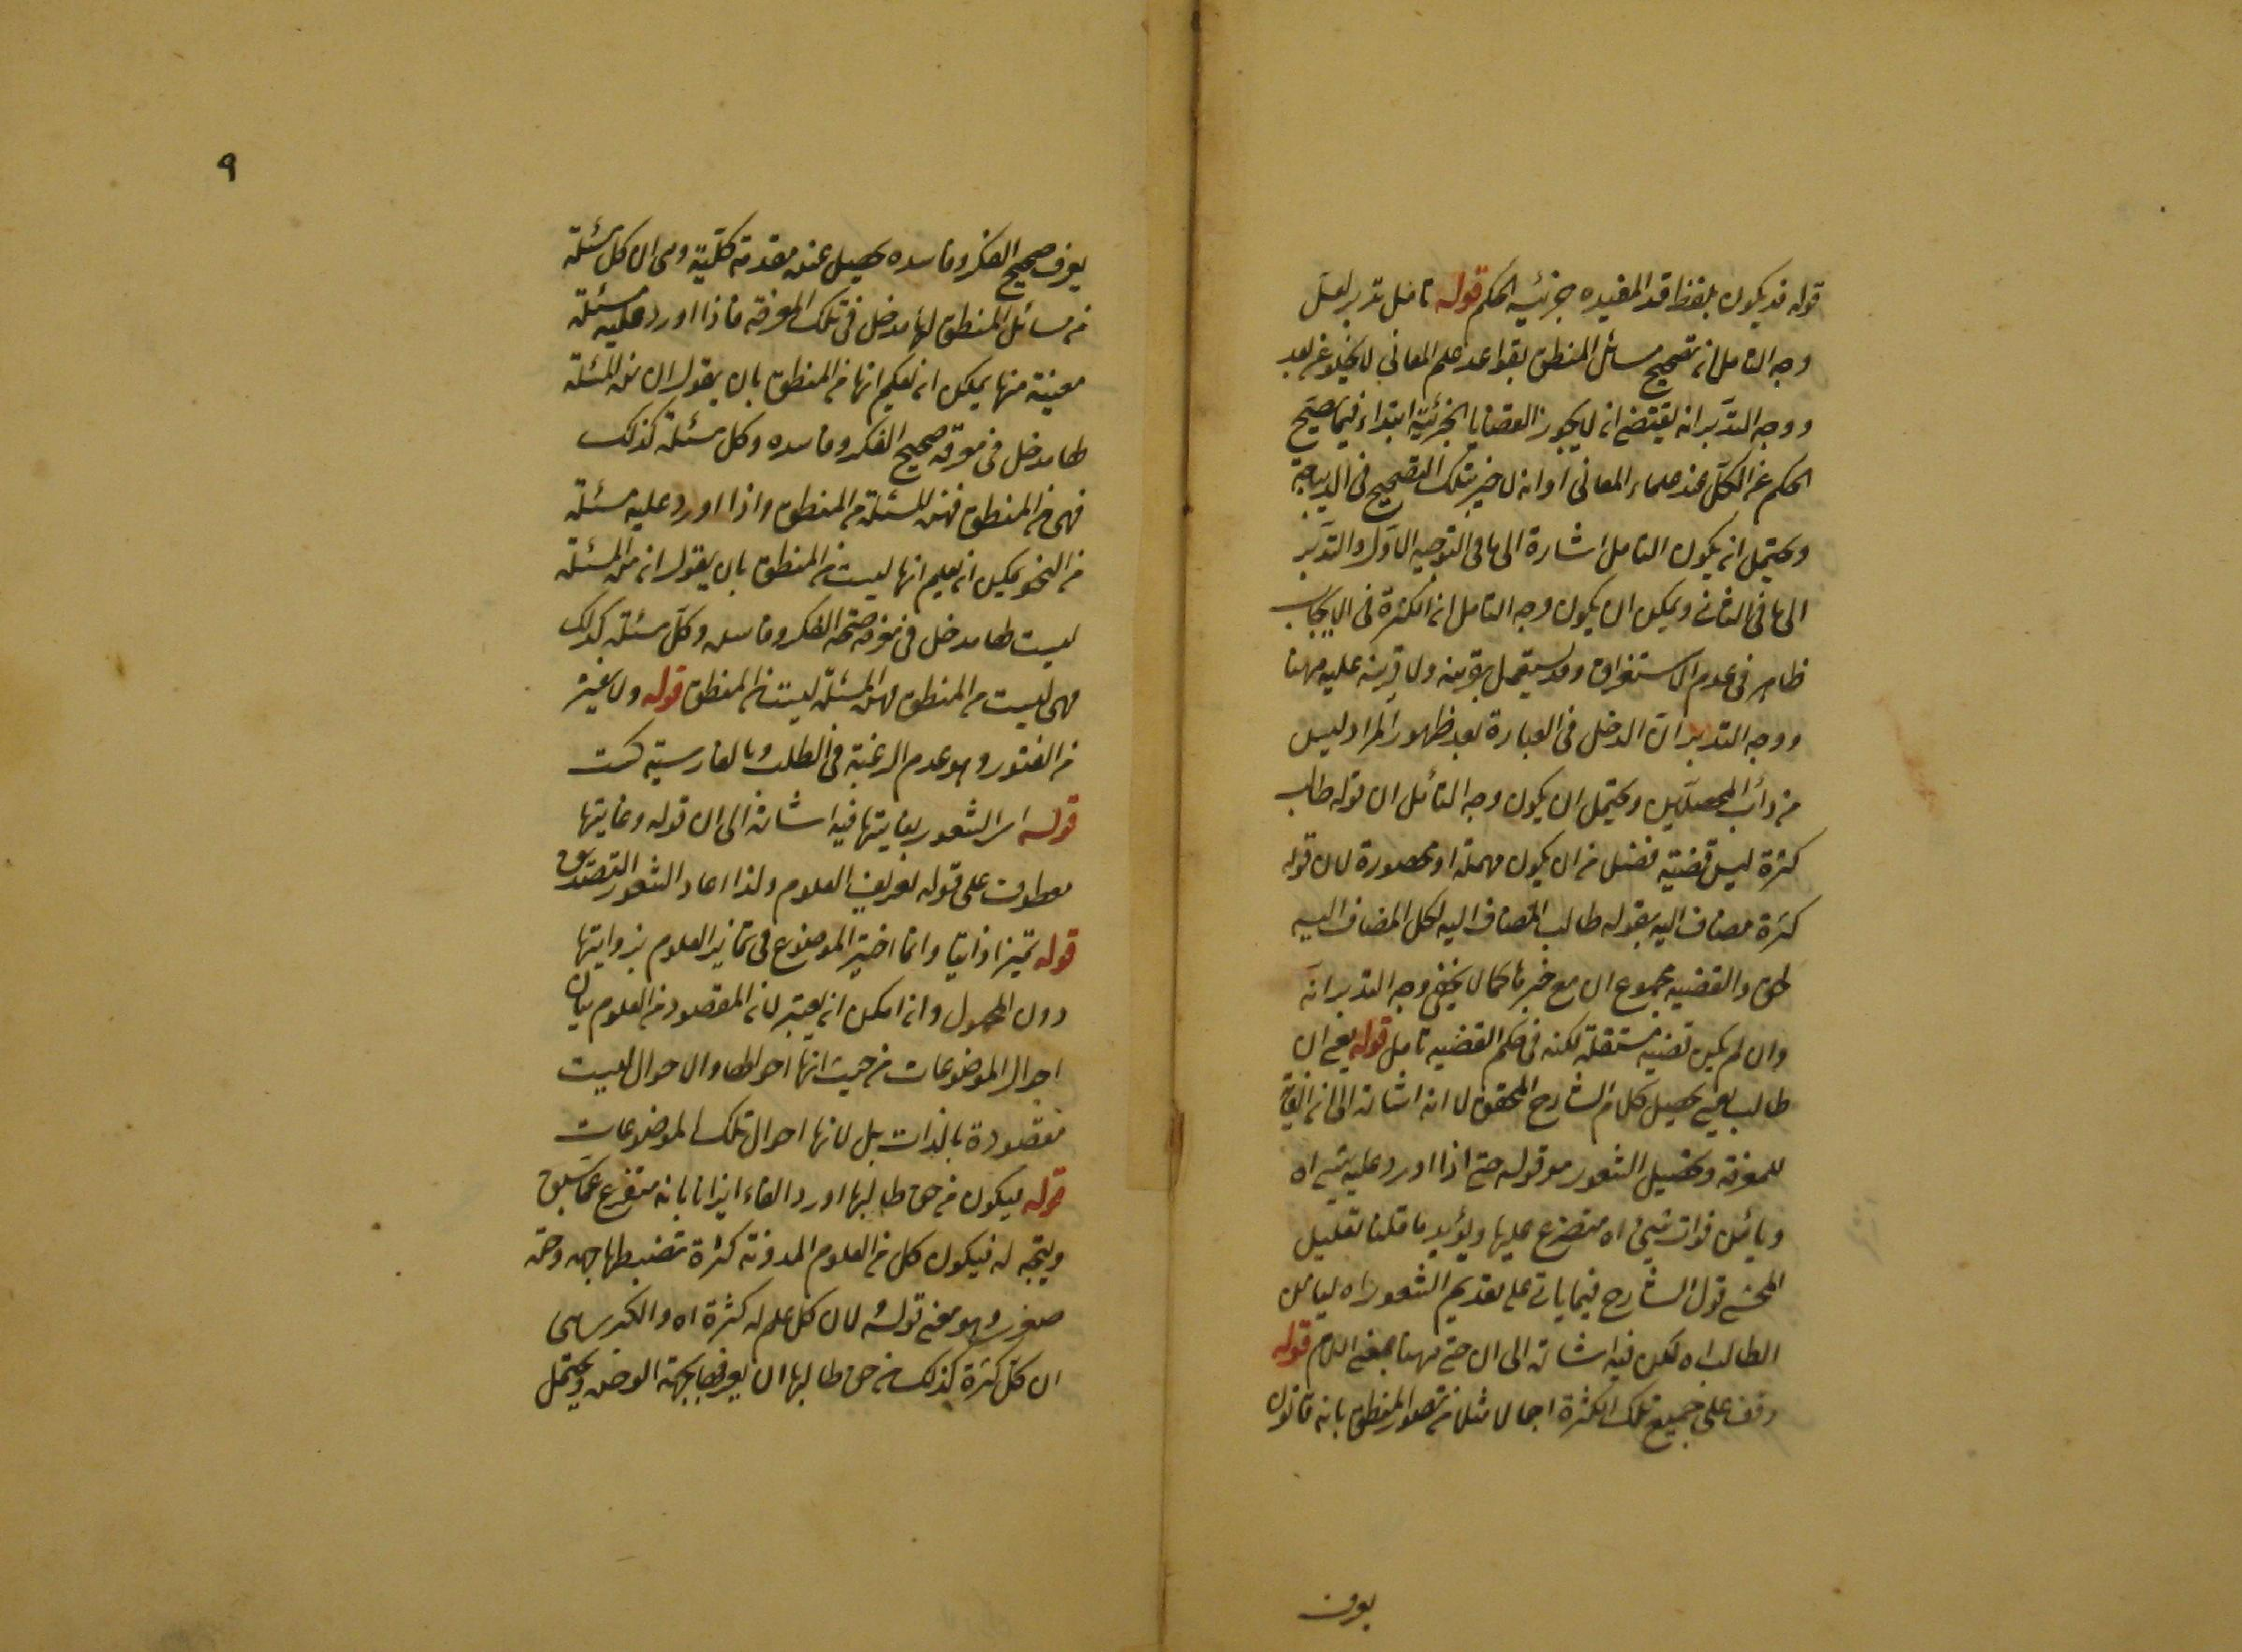 قوله قد يكون بلفظ قد المفيده جزئيه الحكم قوله تامل تدبر لعل
وجه التامل انه تصحيح مسائل المنطق بقواعد علم المعاني لا يخلو عن بعد
ووجه التدبر انه يقتضي انه لا يجوز القضايا الجزئية ابتداء فيما صح
الحكم عن الكل عند علماء المعانى او انه لا خير بتلك التصحيح فى الديباجة
ويحتمل انه يكون التامل اشارة الى ما فى التوجيه الاول والتدبر
الى ما فى الثانى ويمكن ان يكون وجه التامل ان الكثرة فى الايجاب
ظاهر فى عدم الاستغراق وقد يستعمل بقرينه ولا قرينه عليه ههنا
ووجه التدبر ان الدخل فى العبارة بعد ظهور المراد ليس
من دأب المحصلين ويحتمل ان يكون وجه التأمل ان قوله طالب
كثرة ليس قضية فضلا من ان يكون مهملة او محصورة لان قوله
كثرة مضاف اليه بقوله طالب المضاف اليه لكل المضاف اليه
لحق والقضيه مجموع ان مع خبرها كما لا يخفى وجه التدبر انه
وان لم يكن قضية مستقلة لكنه فى حكم القضيه تامل قوله يعنى ان
طالب يعنى تحصيل كلام الشارح المحقق لا انه اشارة الى انه الغاية
للمعرفة وتحصيل الشعور هو قوله حتى اذا اورد عليه شيء اه
ويأمن فوات شيئ اه متفرع عليها ويؤيد ما قلنا تعليل
المحشى قول الشارح فيما ياتى على تقديم الشعور اه ليامن
الطالب اه لكن فيه اشارة الى ان حتى ههنا بمعنى اللام قوله
وقف على جميع تلك الكثرة اجمالا مثلا من تصور المنطق بانه قانون
يعرف
٩
يعرف صحيح الفكر وفاسده يحصل عنده مقدمة كلية وهى ان كل مسئلة
من مسائل المنطق لها مدخل فى تلك المعرفة فاذا اورد عليه مسئلة
معينة منها يمكن انه يحكم انها من المنطق بان يقول ان هذه المسئلة
لها مدخل فى معرفة صحيح الفكر وفاسده وكل مسئلة كذلك
فهى من المنطق فهذه المسئلة من المنطق واذا اورد عليه مسئلة
من النحو يمكن انه يعلم انها ليست من المنطق بان يقول انه هذه المسئلة
ليست لها مدخل فى معرفة صحة الفكر وفاسده وكل مسئلة كذلك
فهى ليست من المنطق فهذه المسئلة ليست من المنطق قوله ولا يفتر
من الفتور وهو عدم الرغبة فى الطلب وبالفارسية سست
قوله اى الشعور بغايتها فيه اشارة الى ان قوله وغايتها
معطوف على قوله تعريف العلوم ولذا اعاد الشعور التصديق
قوله تميزا ذاتيا وانما اختير الموضوع فى تمايز العلوم بذواتها
دون المحمول وانه امكن انه يعتبر لانه المقصود من العلوم بيان
احوال الموضوعات من حيث انها احوالها والاحوال ليست
مقصودة بالذات بل لانها احوال تلك الموضوعات
قوله ليكون من حق طالبها اورد الفاء ايذانا بانه متفرع على ما سبق
ويتجه له فيكون كل من العلوم المدونة كثرة تضبطها جهه وحدة
صغرى وهو معنى قوله لان كل علم له كثرة اه والكبرى هى
ان كل كثرة كذلك من حق طالبها ان يعرفها بجهة الوحده ويحتمل